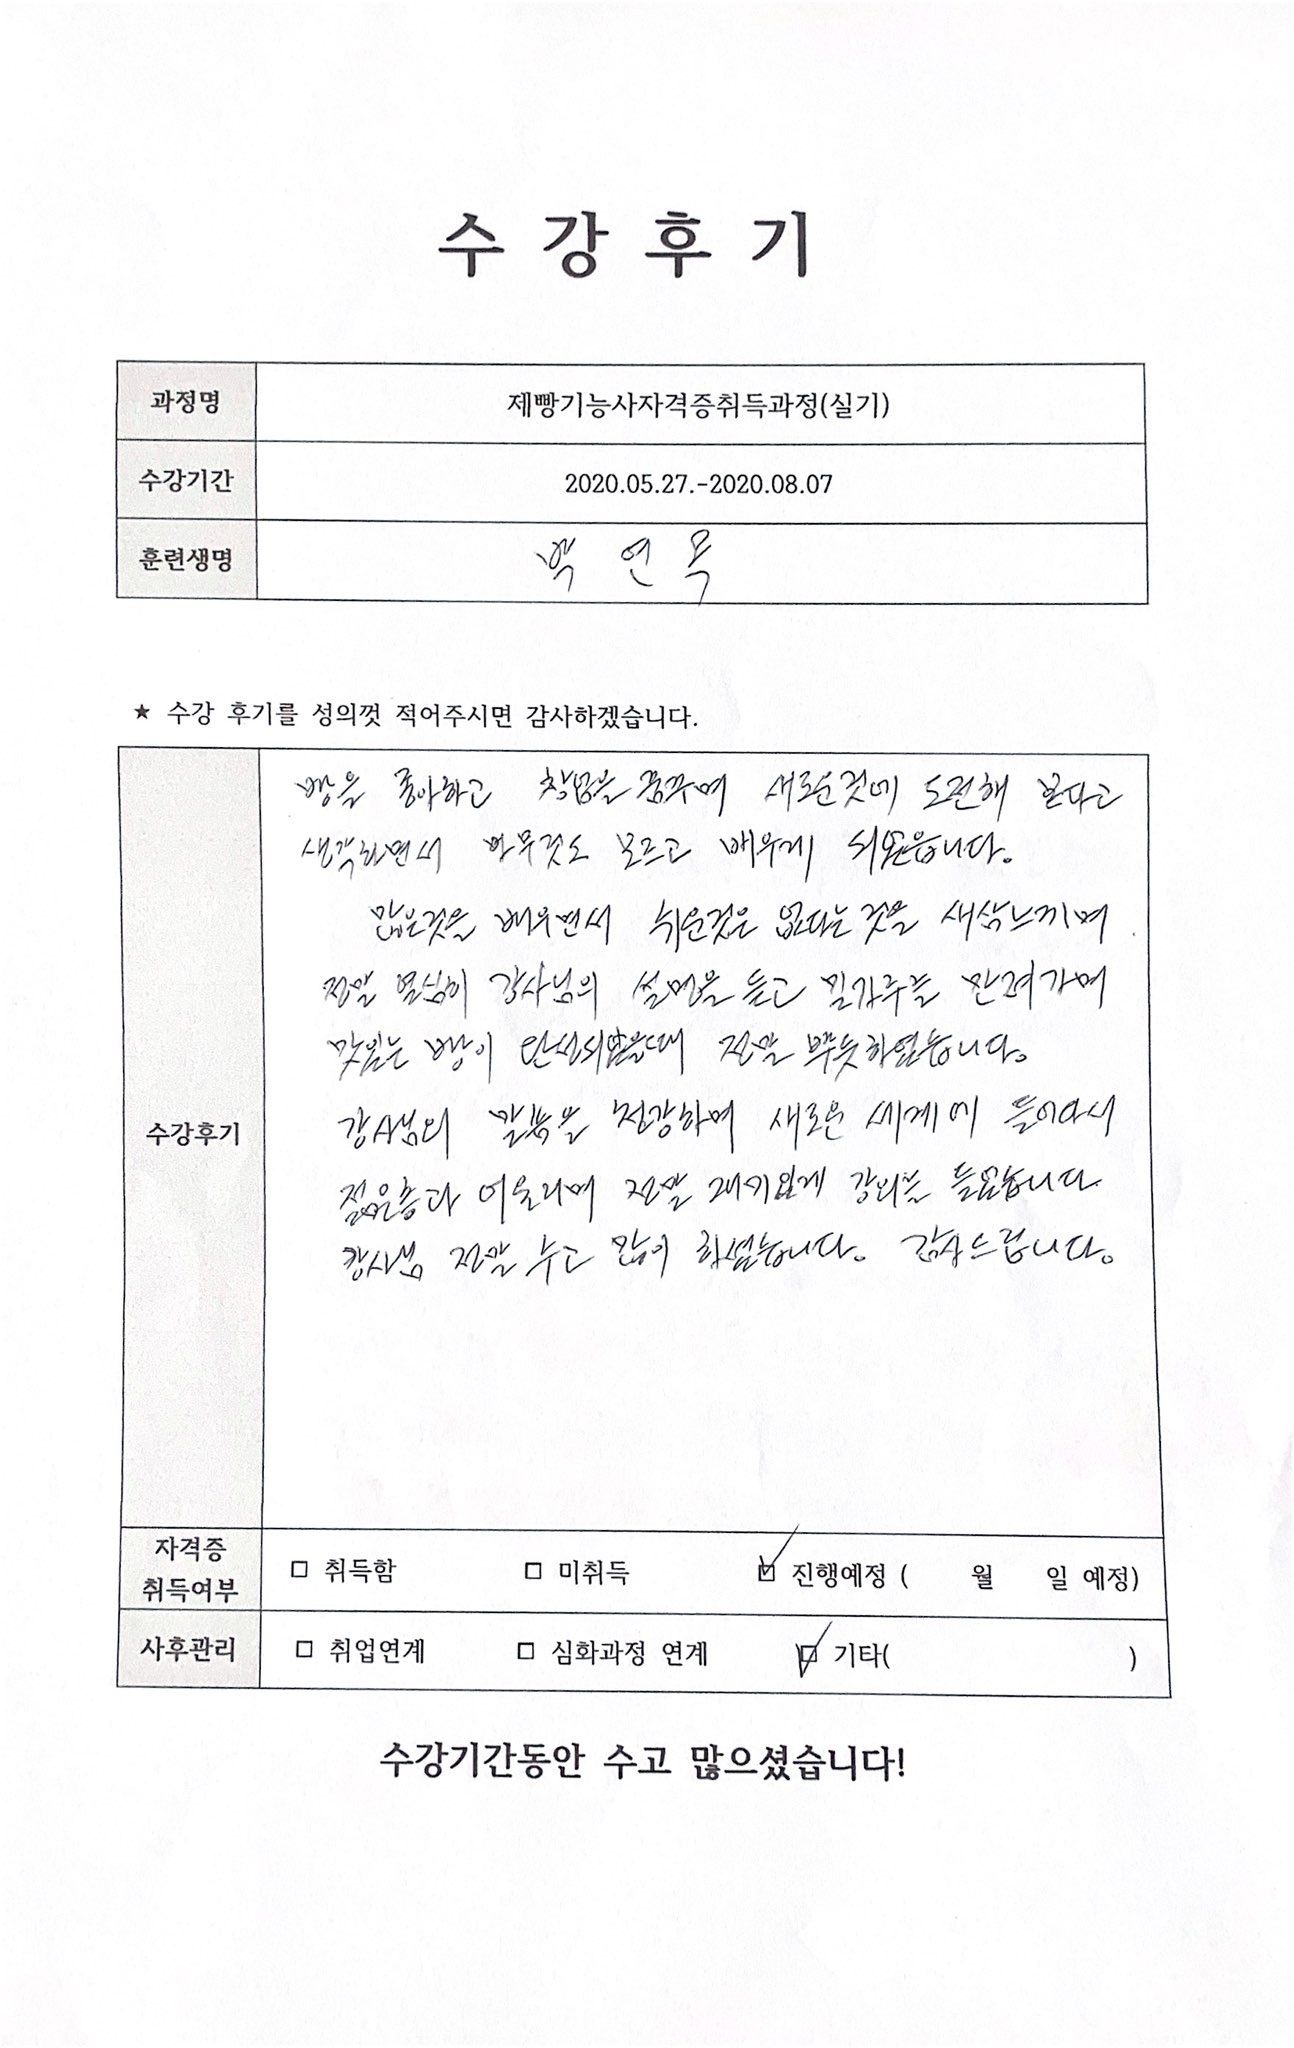 수 강 후 기
과정명 제빵기능사자격증취득과정(실기)
수강기간 2020.05.27.-2020.08.07
훈련생명 박 연 옥
★ 수강 후기를 성의껏 적어주시면 감사하겠습니다.
수강후기
빵을 좋아하고 창업을 꿈꾸며 새로운것에 도전해 본다고
생각하면서 아무것도 모르고 배우게 되었읍니다.
많은것을 배우면서 쉬운것은 없다는 것을 새삼느끼며
정말 열심히 강사님의 설명을 듣고 밀가루를 만져가며
맛있는 빵이 완성되었을때 정말 뿌듯하였습니다.
강사님의 말씀을 청강하며 새로운 세계에 들어다서
젊은층과 어울리며 정말 재미있게 강의를 들었습니다
강사님 정말 수고 많이 하셨습니다. 감사드립니다.
자격증 취득여부 □ 취득함 □ 미취득 ☑ 진행예정 ( 월 일 예정)
사후관리 □ 취업연계 □ 심화과정 연계 ☑ 기타( )
수강기간동안 수고 많으셨습니다!